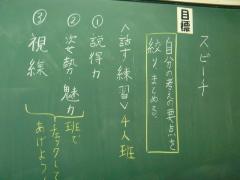 スピーチ
目標
自分の考えの要点を
絞りまとめる。
<話す練習>4人班
①説得力
②姿勢 魅力
③視線
班で
チェックして
あげよう